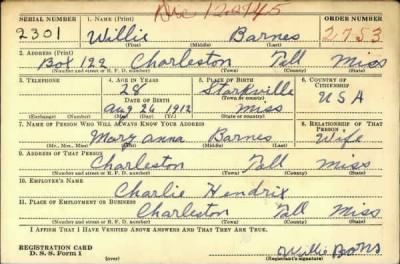 Dec 12 1945
SERIAL NUMBER 1. NAME (Print) ORDER NUMBER
2301 Willie Barnes 2753
(First) (Middle) (Last)
2. ADDRESS (Print)
Box 122 Charleston Tall Miss
(Number and street or R. F. D. number) (Town) (County) (State)
3. TELEPHONE 4. AGE IN YEARS 5. PLACE OF BIRTH 6. COUNTRY OF CITIZENSHIP
28 Starkville
DATE OF BIRTH (Town or county)
Aug 26 1912 Miss USA
(Exchange) (Number) (Mo.) (Day) (Yr.) (State or country)
7. NAME OF PERSON WHO WILL ALWAYS KNOW YOUR ADDRESS 8. RELATIONSHIP OF THAT PERSON
Mary Anna Barnes Wife
(Mr., Mrs., Miss) (First) (Middle) (Last)
9. ADDRESS OF THAT PERSON
Charleston Tall Miss
(Number and street or R. F. D. number) (Town) (County) (State)
10. EMPLOYER'S NAME
Charlie Hendrix
11. PLACE OF EMPLOYMENT OR BUSINESS
Charleston Tall Miss
(Number and street or R. F. D. number) (Town) (County) (State)
I AFFIRM THAT I HAVE VERIFIED ABOVE ANSWERS AND THAT THEY ARE TRUE.
REGISTRATION CARD
D. S. S. Form 1 (over) Willie
(Registrant's signature)